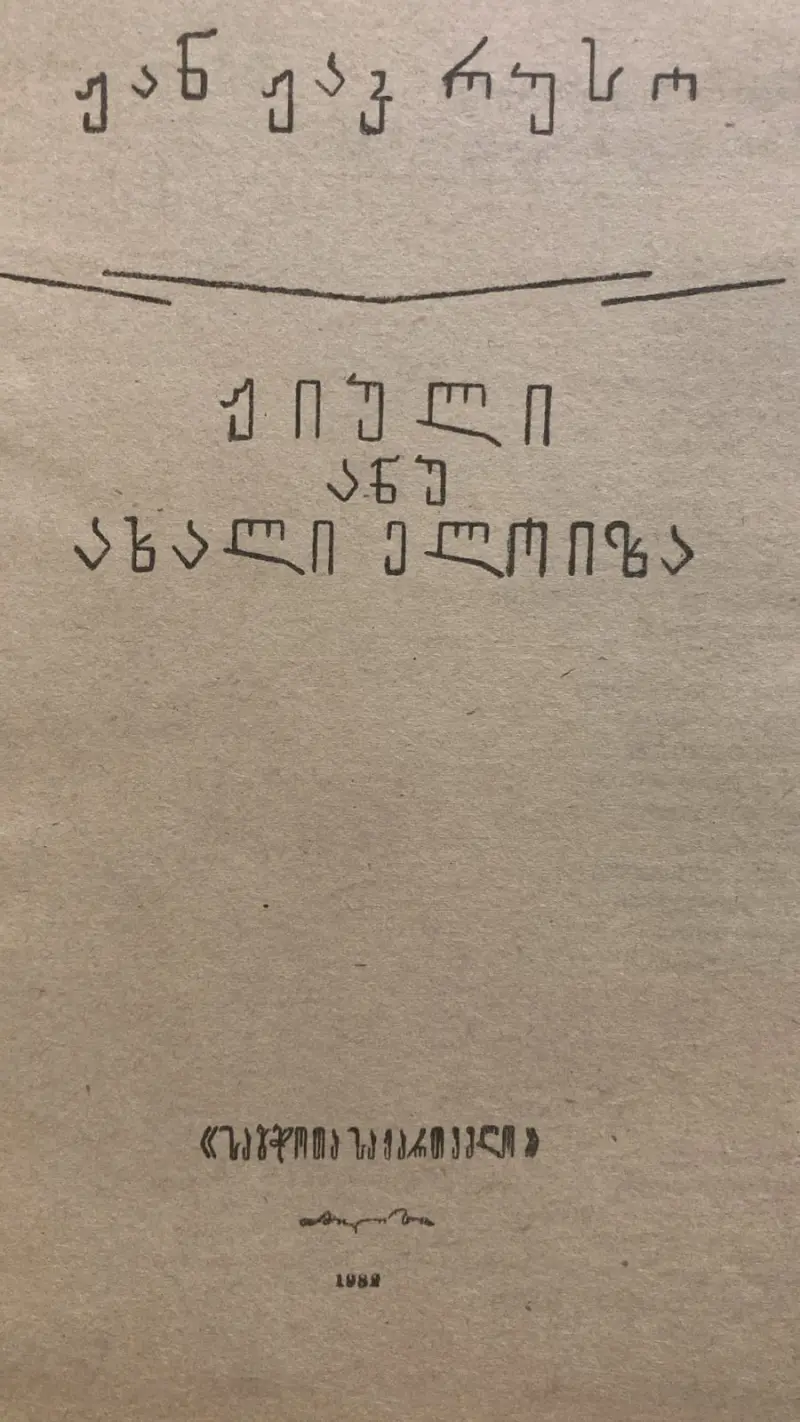 ჟან ჟაკ რუსო
ჟიული
ანუ
ახალი ელოიზა
«საბჭოთა საქართველო»
1982